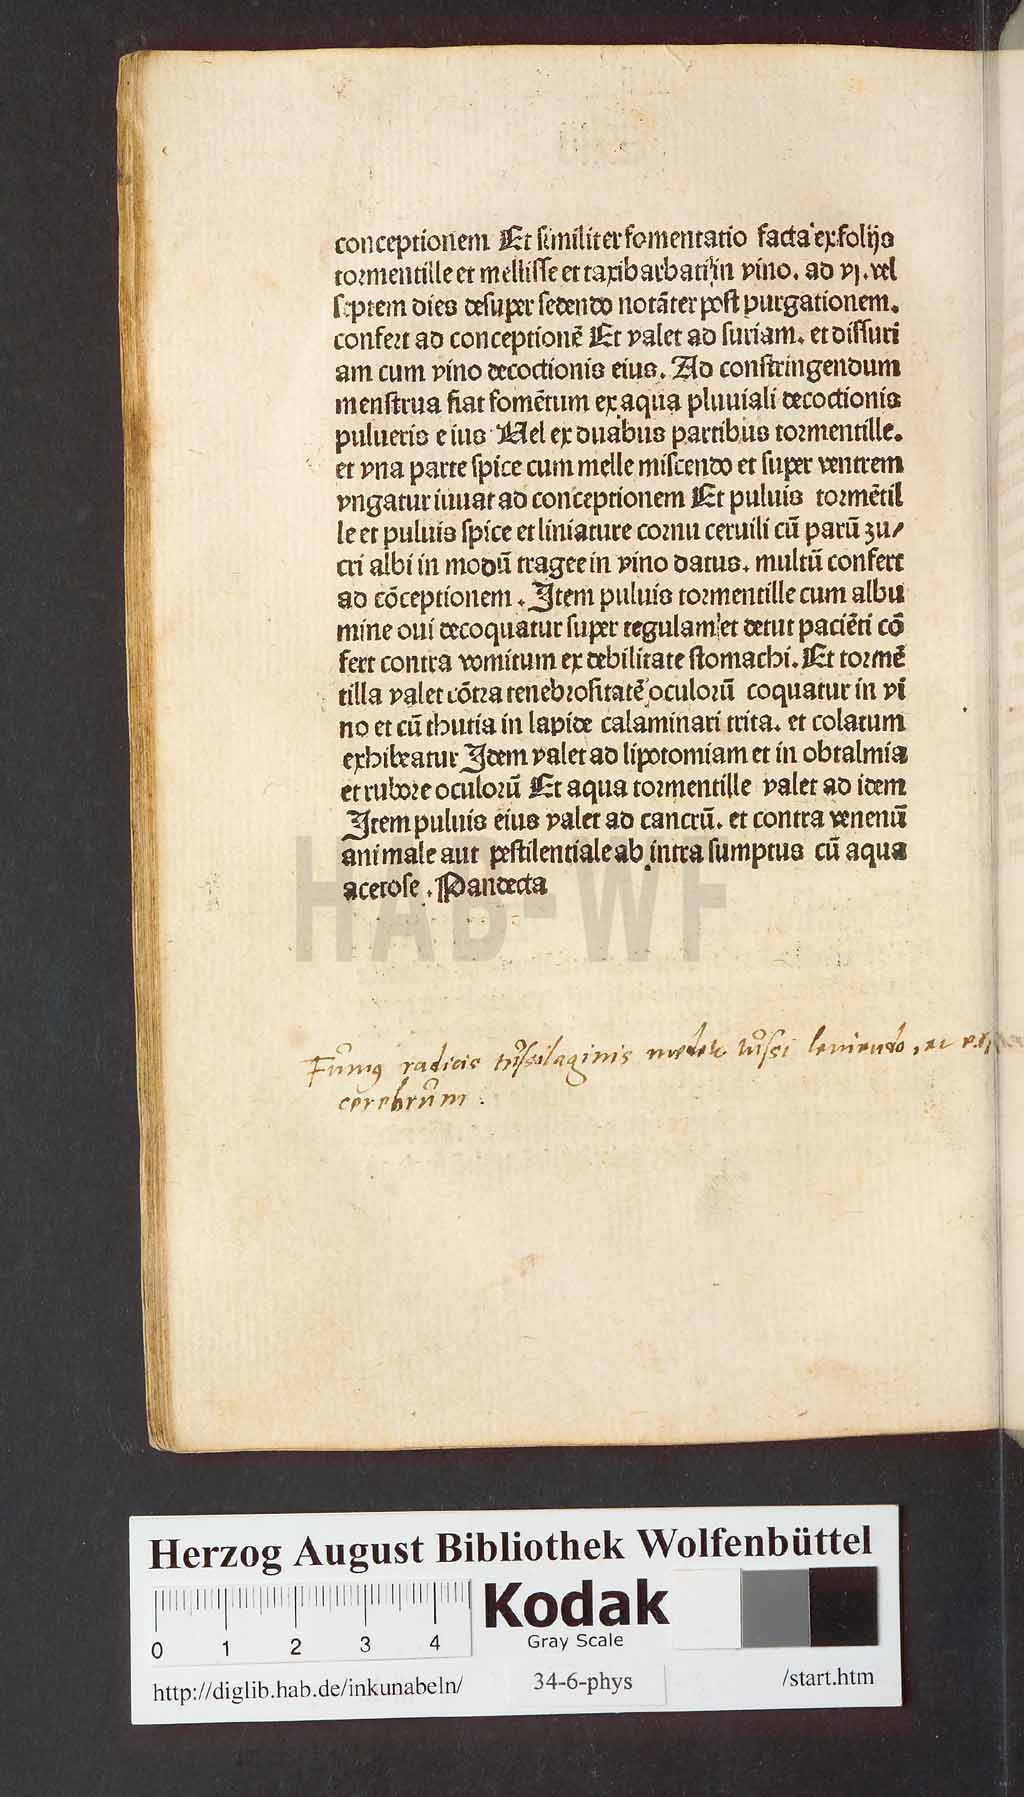 conceptionem Et similiter fomentatio facta ex folijs
tormentille et mellisse et taxibarbati in vino. ad vj. vel
septem dies desuper sedendo notãter post purgationem.
confert ad conceptionẽ Et valet ad suriam. et dissuri
am cum vino decoctionis eius. Ad constringendum
menstrua fiat fomẽtum ex aqua pluuiali decoctionis
pulueris eius Uel ex duabus partibus tormentille.
et vna parte spice cum melle miscendo et super ventrem
vngatur iuuat ad conceptionem Et puluis tormẽtil
le et puluis spice et liniature cornu ceruili cũ parũ zu/
cri albi in modũ tragee in vino datus. multũ confert
ad cõceptionem. Item puluis tormentille cum albu
mine oui decoquatur super regulam et detut paciẽti cõ
fert contra vomitum ex debilitate stomachi. Et tormẽ
tilla valet cõtra tenebrositatẽ oculorũ coquatur in vi
no et cũ thutia in lapide calaminari trita. et colatum
exhibeatur Idem valet ad lipotomiam et in obtalmia
et rubore oculorũ Et aqua tormentille valet ad idem
Item puluis eius valet ad cancrũ. et contra venenũ
animale aut pestilentiale ab intra sumptus cũ aqua
acetose. Pandecta
HAB-WF
Fumus radicis tussilaginis tussi leniendo, et
cerebrum.
Herzog August Bibliothek Wolfenbüttel
0 1 2 3 4
Kodak
Gray Scale
http://diglib.hab.de/inkunabeln/ 34-6-phys /start.htm